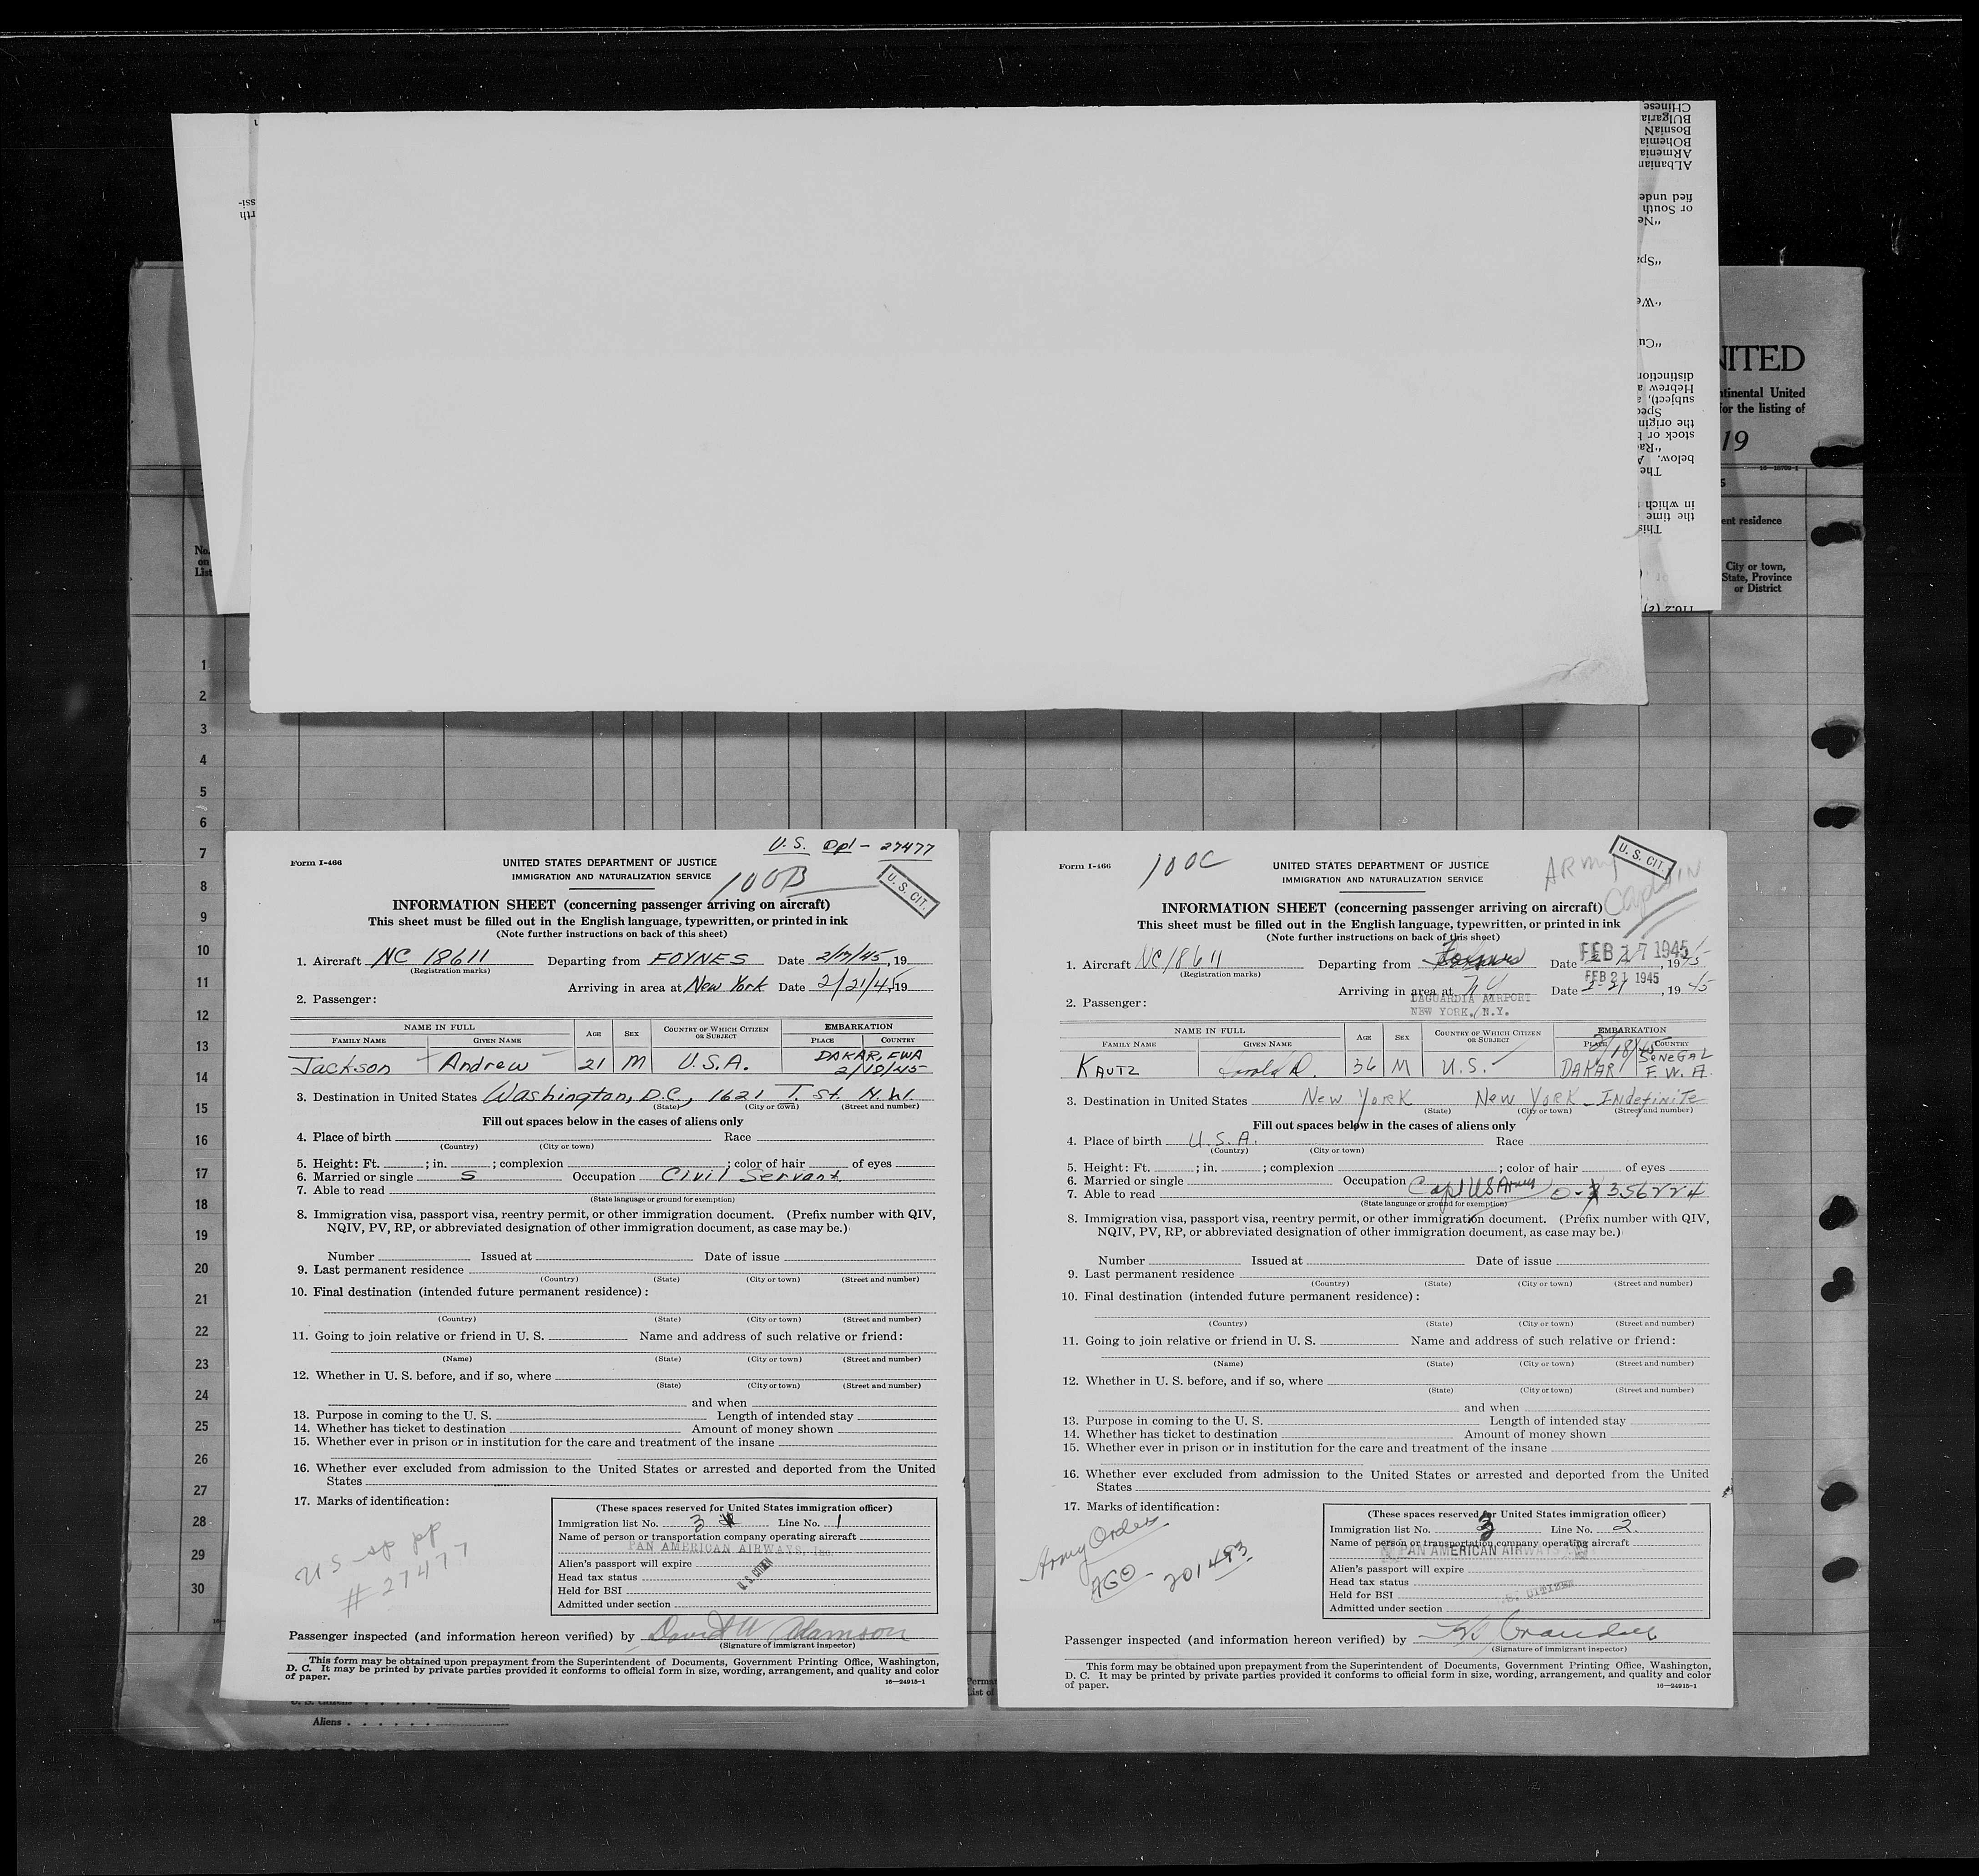 CHinese
BUlgaria
BosniaN
BOhemia
ARmenia
ALbanian
fied unde
or South
"Ne
"Spa
"We
"Cu
distinction
Hebrew a
subject), a
Spec
the origin
stock or b
"Ra
below. A
The
in which
the time
This
110.2 (2)
ssi-
rth
NITED
ntinental United
for the listing of
19
ent residence
City or town,
State, Province
or District
No.
on
List
1
2
3
4
5
6
7
8
9
10
11
12
13
14
15
16
17
18
19
20
21
22
23
24
25
26
27
28
29
30
Aliens
U.S. Dpl - 27477
Form I-466
UNITED STATES DEPARTMENT OF JUSTICE
IMMIGRATION AND NATURALIZATION SERVICE
100B
U. S. CIT.
INFORMATION SHEET (concerning passenger arriving on aircraft)
This sheet must be filled out in the English language, typewritten, or printed in ink
(Note further instructions on back of this sheet)
1. Aircraft NC 18611 Departing from FOYNES Date 2/17/45, 19
(Registration marks)
Arriving in area at New York Date 2/21/45 19
2. Passenger:
NAME IN FULL AGE SEX COUNTRY OF WHICH CITIZEN OR SUBJECT EMBARKATION
FAMILY NAME GIVEN NAME PLACE COUNTRY
Jackson Andrew 21 M U.S.A. DAKAR, FWA
2/18/45
3. Destination in United States Washington, D.C., 1621 T. St. N.W.
(State) (City or town) (Street and number)
Fill out spaces below in the cases of aliens only
4. Place of birth Race
(Country) (City or town)
5. Height: Ft. ; in. ; complexion ; color of hair of eyes
6. Married or single S Occupation Civil Servant
7. Able to read
(State language or ground for exemption)
8. Immigration visa, passport visa, reentry permit, or other immigration document. (Prefix number with QIV,
NQIV, PV, RP, or abbreviated designation of other immigration document, as case may be.)
Number Issued at Date of issue
9. Last permanent residence
(Country) (State) (City or town) (Street and number)
10. Final destination (intended future permanent residence):
(Country) (State) (City or town) (Street and number)
11. Going to join relative or friend in U. S. Name and address of such relative or friend:
(Name) (State) (City or town) (Street and number)
12. Whether in U. S. before, and if so, where
(State) (City or town) (Street and number)
and when
13. Purpose in coming to the U. S. Length of intended stay
14. Whether has ticket to destination Amount of money shown
15. Whether ever in prison or in institution for the care and treatment of the insane
16. Whether ever excluded from admission to the United States or arrested and deported from the United
States
17. Marks of identification:
US sp pp
# 27477
(These spaces reserved for United States immigration officer)
Immigration list No. 3 Line No. 1
Name of person or transportation company operating aircraft
PAN AMERICAN AIRWAYS, Inc.
Alien's passport will expire
Head tax status
Held for BSI
Admitted under section
U. S. CITIZEN
Passenger inspected (and information hereon verified) by David W Adamson
(Signature of immigrant inspector)
This form may be obtained upon prepayment from the Superintendent of Documents, Government Printing Office, Washington,
D. C. It may be printed by private parties provided it conforms to official form in size, wording, arrangement, and quality and color
of paper.
16—24915-1
Form I-466
100C
UNITED STATES DEPARTMENT OF JUSTICE
IMMIGRATION AND NATURALIZATION SERVICE
U. S. CIT.
ARMY
Captain
INFORMATION SHEET (concerning passenger arriving on aircraft)
This sheet must be filled out in the English language, typewritten, or printed in ink
(Note further instructions on back of this sheet)
1. Aircraft NC18611 Departing from Foynes Date FEB 17 1945, 1945
(Registration marks)
Arriving in area at NY Date 2-21, 1945
FEB 21 1945
LAGUARDIA AIRPORT
NEW YORK, N.Y.
2. Passenger:
NAME IN FULL AGE SEX COUNTRY OF WHICH CITIZEN OR SUBJECT EMBARKATION
FAMILY NAME GIVEN NAME PLACE COUNTRY
2/18/45
KAUTZ D. 36 M U.S. DAKAR SENEGAL
F. W. A.
3. Destination in United States New York New York Indefinite
(State) (City or town) (Street and number)
Fill out spaces below in the cases of aliens only
4. Place of birth U.S.A. Race
(Country) (City or town)
5. Height: Ft. ; in. ; complexion ; color of hair of eyes
6. Married or single Occupation Capt US Army O-356224
7. Able to read
(State language or ground for exemption)
8. Immigration visa, passport visa, reentry permit, or other immigration document. (Prefix number with QIV,
NQIV, PV, RP, or abbreviated designation of other immigration document, as case may be.)
Number Issued at Date of issue
9. Last permanent residence
(Country) (State) (City or town) (Street and number)
10. Final destination (intended future permanent residence):
(Country) (State) (City or town) (Street and number)
11. Going to join relative or friend in U. S. Name and address of such relative or friend:
(Name) (State) (City or town) (Street and number)
12. Whether in U. S. before, and if so, where
(State) (City or town) (Street and number)
and when
13. Purpose in coming to the U. S. Length of intended stay
14. Whether has ticket to destination Amount of money shown
15. Whether ever in prison or in institution for the care and treatment of the insane
16. Whether ever excluded from admission to the United States or arrested and deported from the United
States
17. Marks of identification:
Army Orders
AGO - 201493
(These spaces reserved for United States immigration officer)
Immigration list No. 3 Line No. 2
Name of person or transportation company operating aircraft
PAN AMERICAN AIRWAYS
Alien's passport will expire
Head tax status
Held for BSI
Admitted under section
U.S. CITIZEN
Passenger inspected (and information hereon verified) by Crandell
(Signature of immigrant inspector)
This form may be obtained upon prepayment from the Superintendent of Documents, Government Printing Office, Washington,
D. C. It may be printed by private parties provided it conforms to official form in size, wording, arrangement, and quality and color
of paper.
16—24915-1